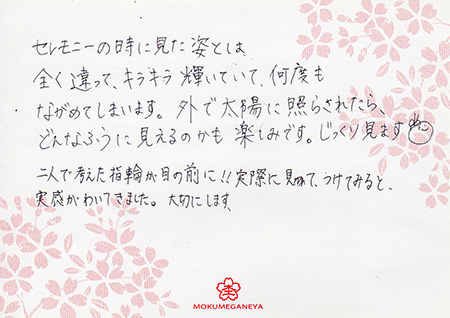 セレモニーの時に見た姿とは
全く違って、キラキラ輝いていて、何度も
ながめてしまいます。外で太陽に照らされたら、
どんなふうに見えるのかも楽しみです。じっくり見ます
二人で考えた指輪が目の前に!!実際に見て、つけてみると、
実感がわいてきました。大切にします。
MOKUMEGANEYA